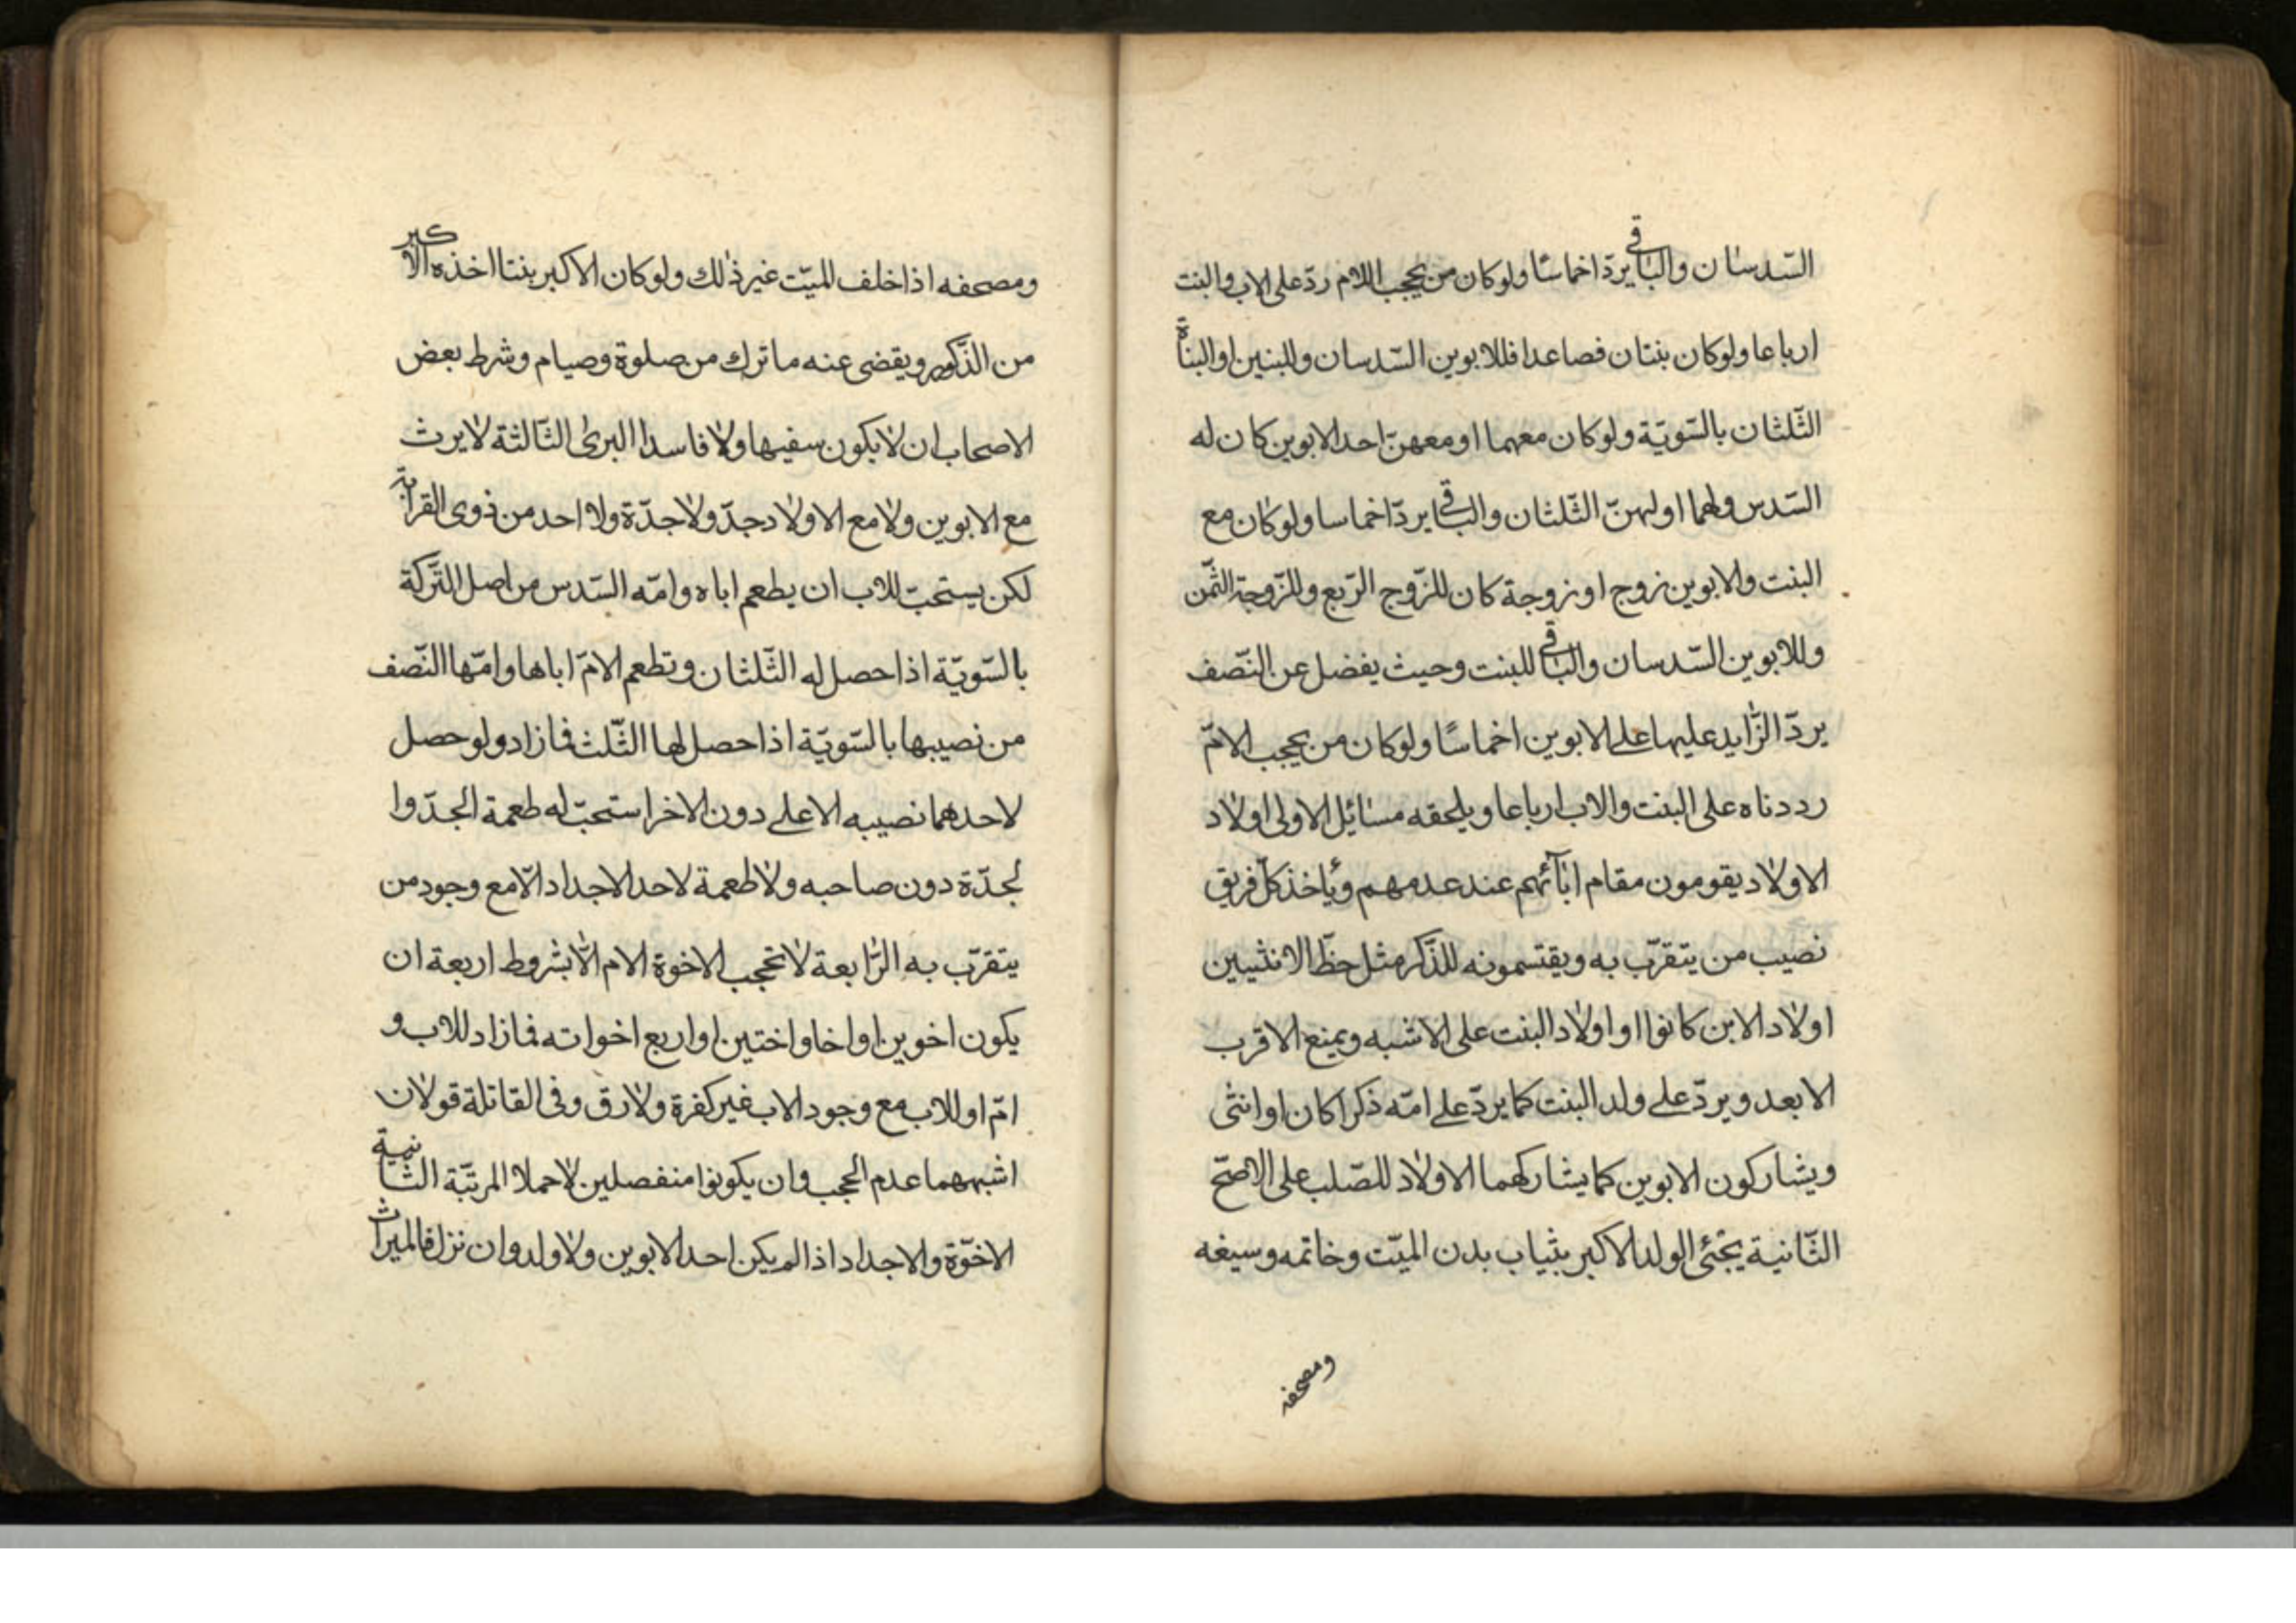 السّدسان والباقي يردّ اخماسًا ولو كان من يحجب الام ردّ على الاب والبنت
ارباعا ولو كان بنتان فصاعدا فللابوين السّدسان وللبنين او البناة
الثّلثان بالسّويّة ولو كان معهما او معهنّ احد الابوين كان له
السّدس ولهما او لهنّ الثّلثان والباقي يردّ اخماسا ولو كان مع
البنت والابوين زوج او زوجة كان للزّوج الرّبع وللزّوجة الثّمن
وللابوين السّدسان والباقي للبنت وحيث يفضل عن النّصف
يردّ الزّايد عليها على الابوين اخماسًا ولو كان من يحجب الامّ
رددناه على البنت والاب ارباعا ويلحقه مسائل الاولى اولاد
الاولاد يقومون مقام ابآئهم عند عدمهم ويأخذ كلّ فريق
نصيب من يتقرّب به ويقتسمونه للذّكر مثل حظّ الانثيين
اولاد الابن كانوا او اولاد البنت على الاشبه ويمنع الاقرب
الابعد ويردّ على ولد البنت كما يردّ على امّه ذكرا كان او انثى
ويشاركون الابوين كما يشاركهما الاولاد للصّلب على الاصحّ
الثّانية يحبى الولد الاكبر بثياب بدن الميّت وخاتمه وسيفه
ومصحفه
ومصحفه اذا خلف الميّت غير ذلك ولو كان الاكبر بنتا اخذه الاكبر
من الذّكور ويقضى عنه ما ترك من صلوة وصيام وشرط بعض
الاصحاب ان لا يكون سفيها ولا فاسد البرى الثّالثة لا يرث
مع الابوين ولا مع الاولاد جدّ ولا جدّة ولا احد من ذوى القرابة
لكن يستحبّ للاب ان يطعم اباه وامّه السّدس من اصل التّركة
بالسّويّة اذا حصل له الثّلثان وتطعم الامّ اباها وامّها النّصف
من نصيبها بالسّويّة اذا حصل لها الثّلث فازاد ولو حصل
لاحدهما نصيبه الاعلى دون الاخر استحبّ له طعمة الجدّ وا
لجدّة دون صاحبه ولا طعمة لاحد الاجداد الّا مع وجود من
يتقرّب به الرّابعة لا تحجب الاخوة الام الّا بشروط اربعة ان
يكون اخوين او اخا واختين او اربع اخوات فمازاد للاب و
امّ او للاب مع وجود الاب غير كفرة ولا رق وفى القاتلة قولان
اشبههما عدم الحجب وان يكونوا منفصلين لا حملا المرتبّة الثّانية
الاخوّة والاجداد اذا لم يكن احد الابوين ولا ولد وان نزل فالميراث